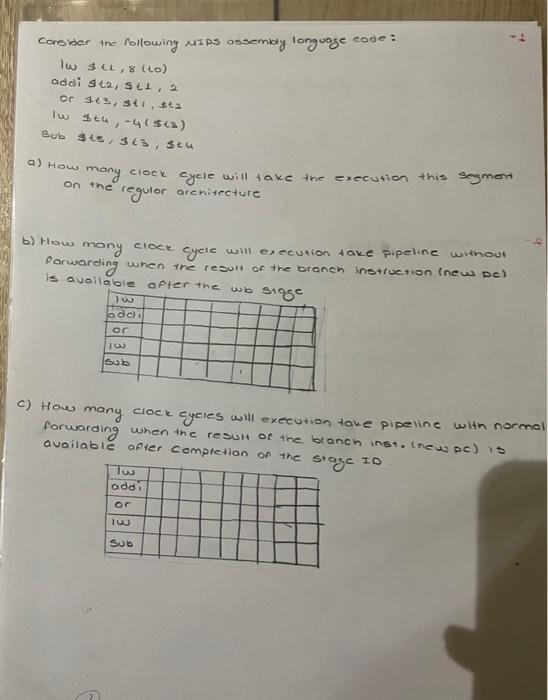 Consider the following MIPS assembly language code:
-1
lw $t1, 8(t0)
addi $t2, $t1, 2
or $t3, $t1, $t2
lw $t4, -4($t3)
Sub $t5, $t3, $t4
a) How many clock cycle will take the execution this segment
on the regular architecture
b) How many clock cycle will execution take pipeline without
forwarding when the result of the branch instruction (new pc)
is available after the wb stage
lw
addi
or
lw
sub
c) How many clock cycles will execution take pipeline with normal
forwarding when the result of the branch inst. (new pc) is
available after completion of the stage ID
lw
addi
or
lw
sub